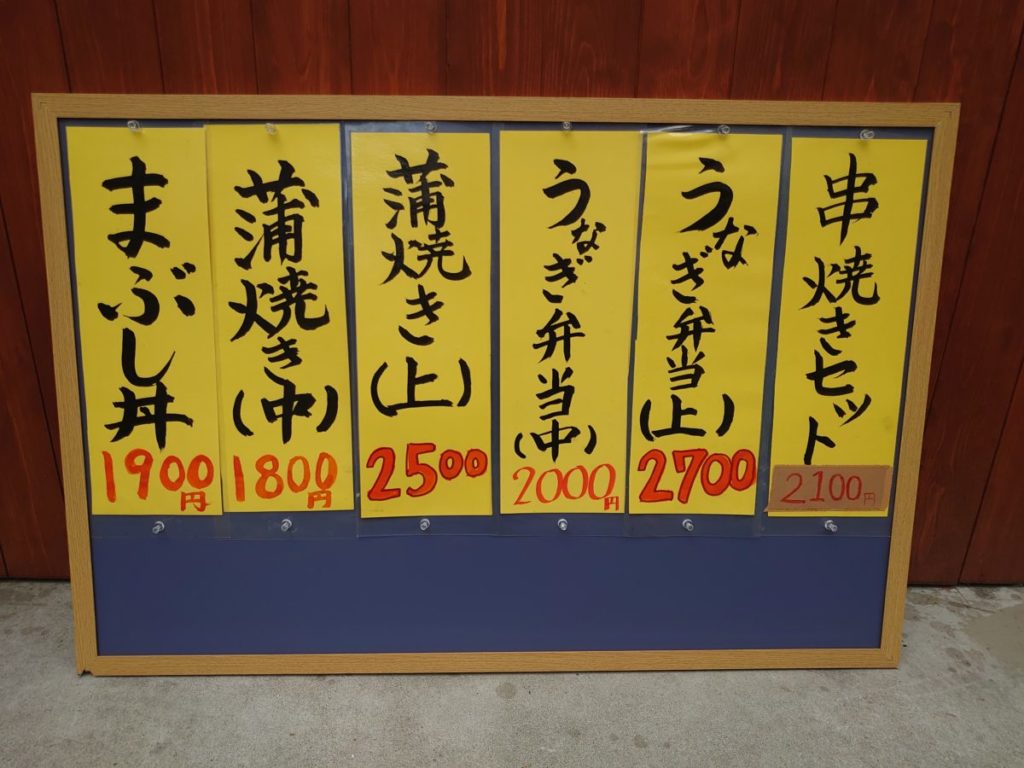 串焼きセット
2100円
うなぎ弁当(上)
2700
うなぎ弁当(中)
2000円
蒲焼き(上)
2500
蒲焼き(中)
1800円
まぶし丼
1900円